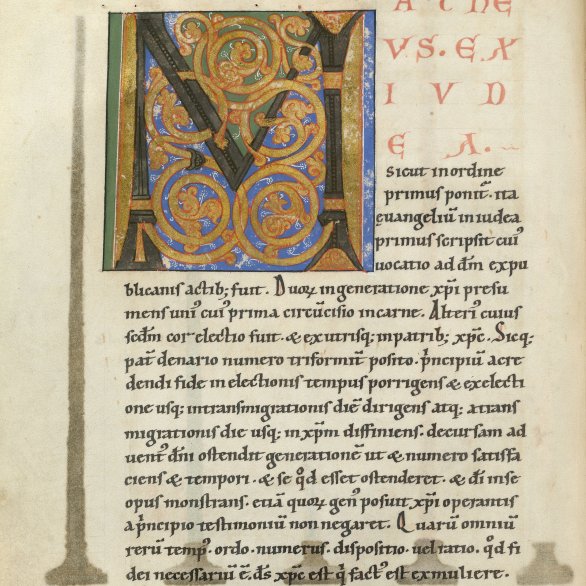 M
ATHE
VS. EX
IVD
EA.
sicut in ordine
primus ponit᷑. ita
euangeliū in iudea
primus scripsit cui᷒
uocatio ad dm̄ expu
blicanis actib; fuit. Duoꝝ in generatione xp̄i presu
mens uni᷒ cui᷒ prima circūcisio in carne. Alteri᷒ cuius
scd̄m cor electio fuit. & ex utrisq; in patrib; xp̄c. Sicq;
pat᷑ denario numero triformit᷑ posito. p̄ncipiū a cre
dendi fide in electionis tempus porrigens & ex electi
one usq; in transmigrationis diē dirigens atq; a trans
migrationis die usq; in xp̄m diffiniens. decursam ad
uent᷒ dn̄i ostendit generationē ut & numero satisfa
ciens & tempori. & se qd̄ esset ostenderet. & dī in se
opus monstrans. etiā quoꝝ gen᷒ posuit xp̄i operantis
a p̄ncipio testimoniū non negaret. Quarū omniū
rerū temp᷒. ordo. numerus. dispositio. uel ratio. qd̄ fi
dei necessariū ē. ds̄ xp̄c est q̄ fact᷒ est ex muliere.